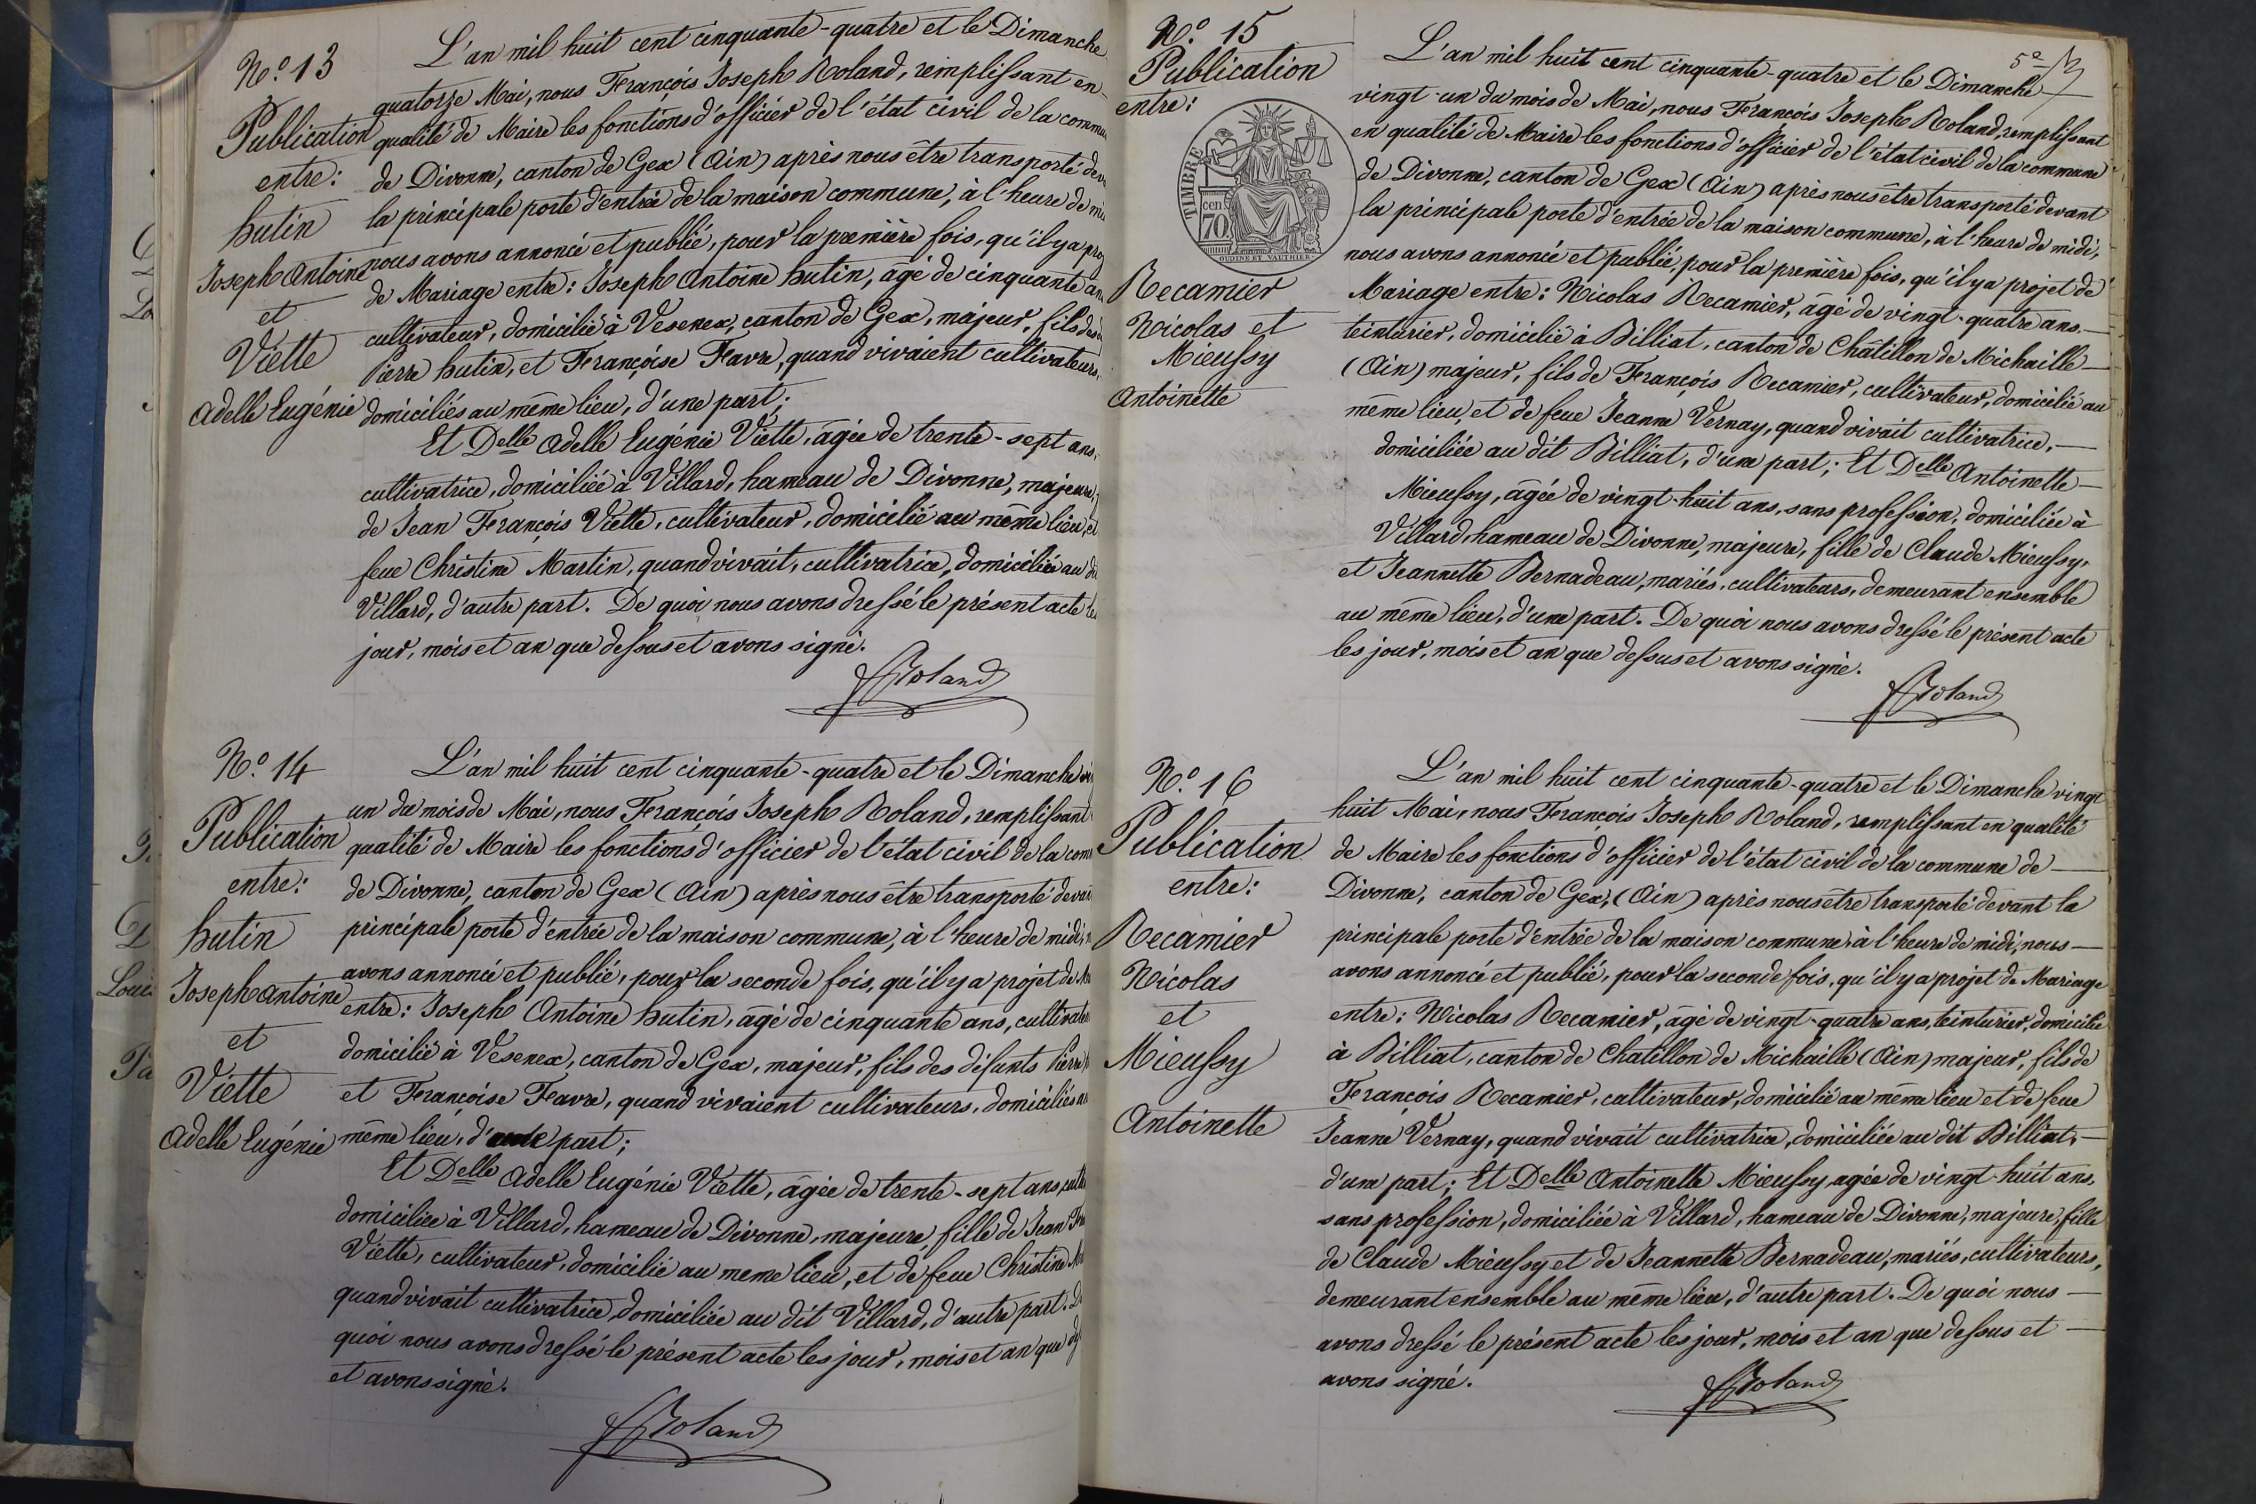 N.º 13
Publication
entre:
hutin
Joseph Antoine
et
Viette
Adelle Eugénie
L'an mil huit cent cinquante-quatre et le Dimanche
quatorze Mai, nous François Joseph Roland, remplissant en
qualité de Maire les fonctions d'officier de l'état civil de la commu
de Divonne, canton de Gex (Ain) après nous être transporté dev
la principale porte d'entrée de la maison commune, à l'heure de mi
nous avons annoncé et publié, pour la première fois, qu'il y a pro
de Mariage entre: Joseph Antoine hutin, âgé de cinquante an
cultivateur, domicilié à Vesenex, canton de Gex, majeur, fils des
Pierre hutin, et Françoise Favre, quand vivaient cultivateurs,
domiciliés au même lieu, d'une part;
Et Delle Adelle Eugénie Viette, âgée de trente-sept ans,
cultivatrice, domiciliée à Villard, hameau de Divonne, majeure,
de Jean François Viette, cultivateur, domicilié au même lieu, et
feue Christine Martin, quand vivait, cultivatrice, domiciliée au di
Villard, d'autre part. De quoi nous avons dressé le présent acte les
jour, mois et an que dessus et avons signé.
Roland
N.º 14
Publication
entre:
hutin
Joseph Antoine
et
Viette
Adelle Eugénie
L'an mil huit cent cinquante-quatre et le Dimanche vi
un du mois de Mai, nous François Joseph Roland, remplissant
qualité de Maire les fonctions d'officier de l'état civil de la com
de Divonne, canton de Gex (Ain) après nous être transporté devan
principale porte d'entrée de la maison commune, à l'heure de midi,
avons annoncé et publié, pour la seconde fois, qu'il y a projet de Ma
entre: Joseph Antoine hutin, âgé de cinquante ans, cultivate
domicilié à Vesenex, canton de Gex, majeur, fils des défunts Pierre
et Françoise Favre, quand vivaient cultivateurs, domiciliés au
même lieu, d'une part;
Et Delle Adelle Eugénie Viette, âgée de trente-sept ans, culti
domiciliée à Villard, hameau de Divonne, majeure, fille de Jean Fra
Viette, cultivateur, domicilié au meme lieu, et de feue Christine Ma
quand vivait cultivatrice, domiciliée au dit Villard, d'autre part. De
quoi nous avons dressé le présent acte les jour, mois et an que
et avons signé.
Roland
N.º 15
Publication
entre:
TIMBRE
70 cen
OUDINÉ ET VAUTHIER
Recamier
Nicolas et
Mieussy
Antoinette
5e
L'an mil huit cent cinquante-quatre et le Dimanche
vingt-un du mois de Mai, nous François Joseph Roland, remplissant
en qualité de Maire les fonctions d'officier de l'état civil de la commune
de Divonne, canton de Gex (Ain) après nous être transporté devant
la principale porte d'entrée de la maison commune, à l'heure de midi,
nous avons annoncé et publié, pour la première fois, qu'il y a projet de
Mariage entre: Nicolas Recamier, âgé de vingt-quatre ans.
teinturier, domicilié à Billiat, canton de Châtillon de Michaille
(Ain) majeur, fils de François Recamier, cultivateur, domicilié au
même lieu, et de feue Jeanne Vernay, quand vivait cultivatrice,
domiciliée au dit Billiat, d'une part; Et Delle Antoinette
Mieussy, âgée de vingt-huit ans, sans profession, domiciliée à
Villard, hameau de Divonne, majeure, fille de Claude Mieussy,
et Jeannette Bernadeau, mariés, cultivateurs, demeurant ensemble
au même lieu, d'une part. De quoi nous avons dressé le présent acte
les jour, mois et an que dessus et avons signé.
Roland
N.º 16
Publication
entre:
Recamier
Nicolas
et
Mieussy
Antoinette
L'an mil huit cent cinquante-quatre et le Dimanche vingt
huit Mai, nous François Joseph Roland, remplissant en qualité
de Maire les fonctions d'officier de l'état civil de la commune de
Divonne, canton de Gex, (Ain) après nous être transporté devant la
principale porte d'entrée de la maison commune, à l'heure de midi, nous
avons annoncé et publié, pour la seconde fois, qu'il y a projet de Mariage
entre: Nicolas Recamier, âgé de vingt-quatre ans, teinturier, domicilié
à Billiat, canton de Chatillon de Michaille (Ain) majeur, fils de
François Recamier, cultivateur, domicilié au même lieu et de feue
Jeanne Vernay, quand vivait cultivatrice, domiciliée au dit Billiat,
d'une part; Et Delle Antoinette Mieussy, agée de vingt-huit ans,
sans profession, domiciliée à Villard, hameau de Divonne, majeure, fille
de Claude Mieussy et de Jeannette Bernadeau, mariés, cultivateurs,
demeurant ensemble au même lieu, d'autre part. De quoi nous
avons dressé le présent acte les jour, mois et an que dessus et
avons signé.
Roland